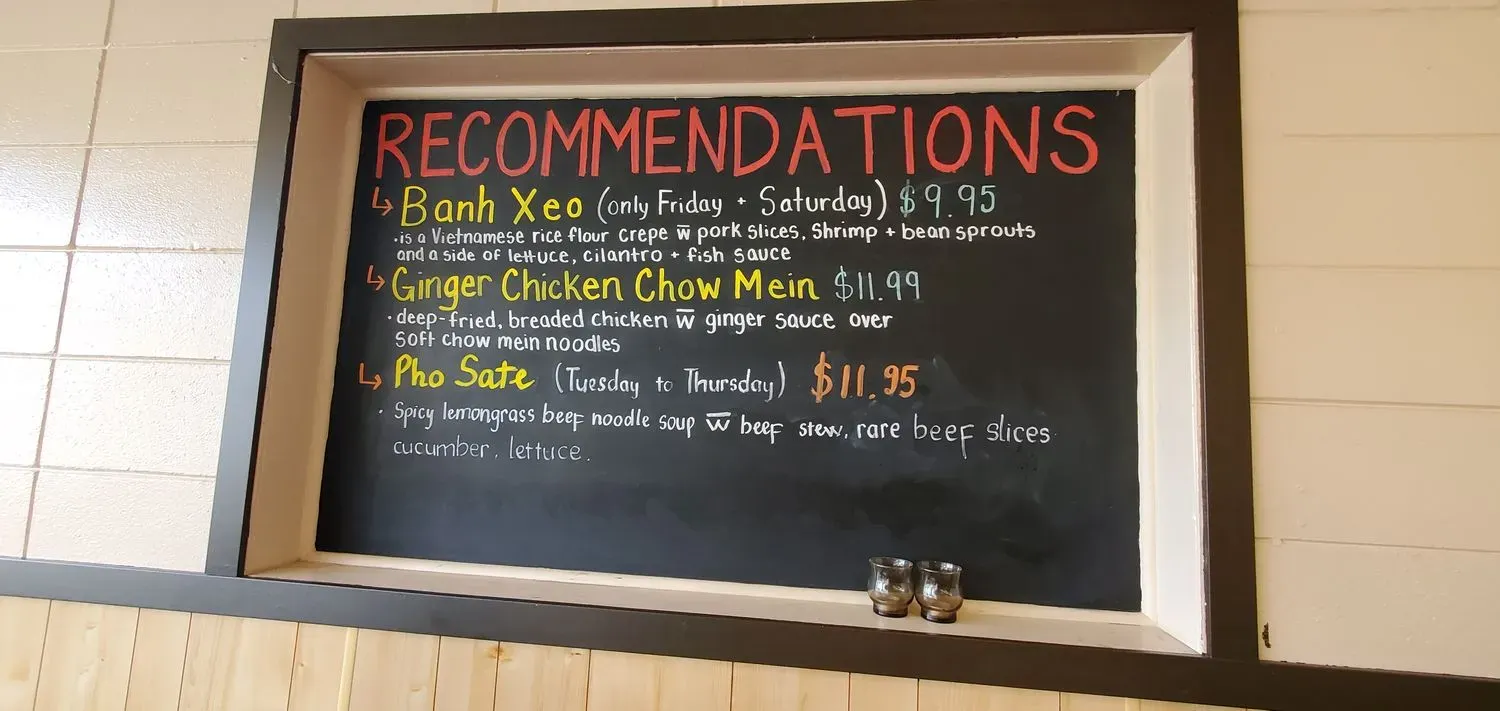 RECOMMENDATIONS
↳ Banh Xeo (only Friday + Saturday) $9.95
·is a Vietnamese rice flour crepe w̅ pork slices, Shrimp + bean sprouts
and a side of lettuce, cilantro + fish sauce
↳ Ginger Chicken Chow Mein $11.99
·deep-fried, breaded chicken w̅ ginger sauce over
soft chow mein noodles
↳ Pho Sate (Tuesday to Thursday) $11.95
· Spicy lemongrass beef noodle soup w̅ beef stew, rare beef slices
cucumber, lettuce.